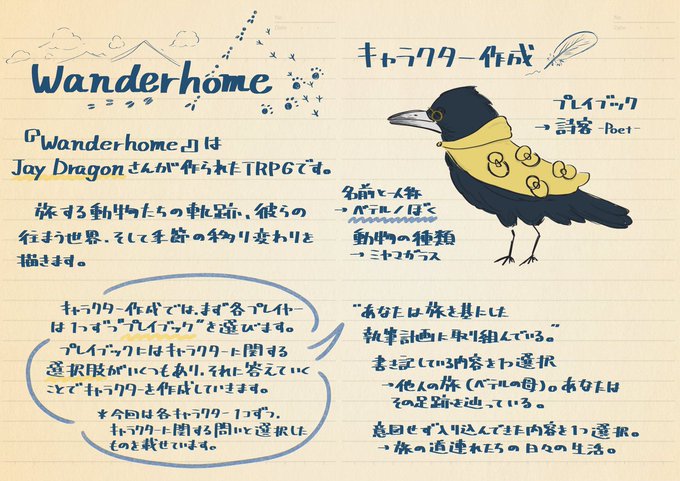 Wanderhome
『Wanderhome』は
Jay Dragonさんが作られたTRPGです。
旅する動物たちの軌跡、彼らの
住まう世界、そして季節の移り変わりを
描きます。
キャラクター作成では、まず各プレイヤー
は1つずつ"プレイブック"を選びます。
プレイブックにはキャラクターに関する
選択肢がいくつもあり、それに答えていく
ことでキャラクターを作成していきます。
*今回は各キャラクター1つずつ、
キャラクターに関する問いと選択した
ものを載せています。
キャラクター作成
プレイブック
→ 詩客 -Poet-
名前と一人称
→ ベテル/ぼく
動物の種類
→ ミヤマガラス
"あなたは旅を基にした
執筆計画に取り組んでいる。"
書き記している内容を1つ選択
→他人の旅(ベテルの母)。あなたは
その足跡を辿っている。
意図せず入り込んできた内容を1つ選択。
→ 旅の道連れたちの日々の生活。
No.
Date